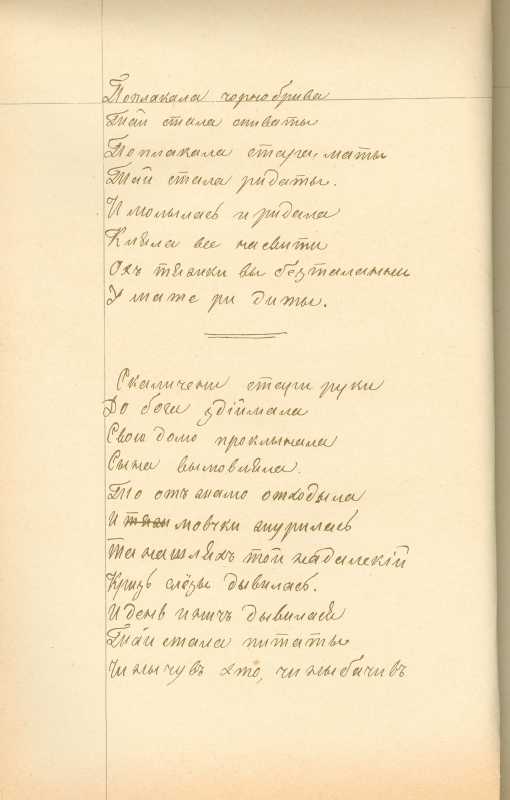 Поплакала чорнобрива
Тай стала спiваты
Поплакала стара, маты
Тай стала рiдаты.
И молылась и ридала
Кляла все на свити
Охъ тяжки вы безталанни
У мате ри диты.
Скаличени стари руки
До бога здiймала
Свою долю проклынала
Сына вымовляла.
То отъ знамо отходыла
И мовчки журилась
Та на шляхъ той на далекiй
Кризь слёзы дывилась.
И день и ничъ дывилася
Тай стала питаты
Чи ны чувъ хто, чи ны бачивъ